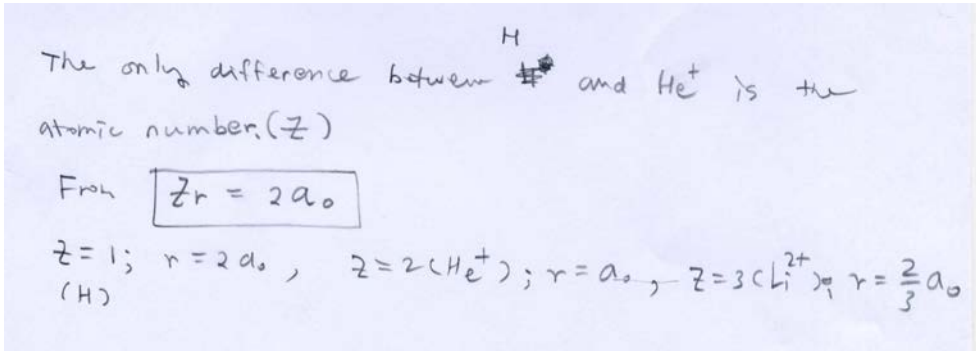 H
The only difference between and He⁺ is the
atomic number. (Z)
From Zr = 2a₀
Z = 1; r = 2a₀, Z = 2 (He⁺); r = a₀, Z = 3 (Li²⁺); r = 2/3 a₀
(H)